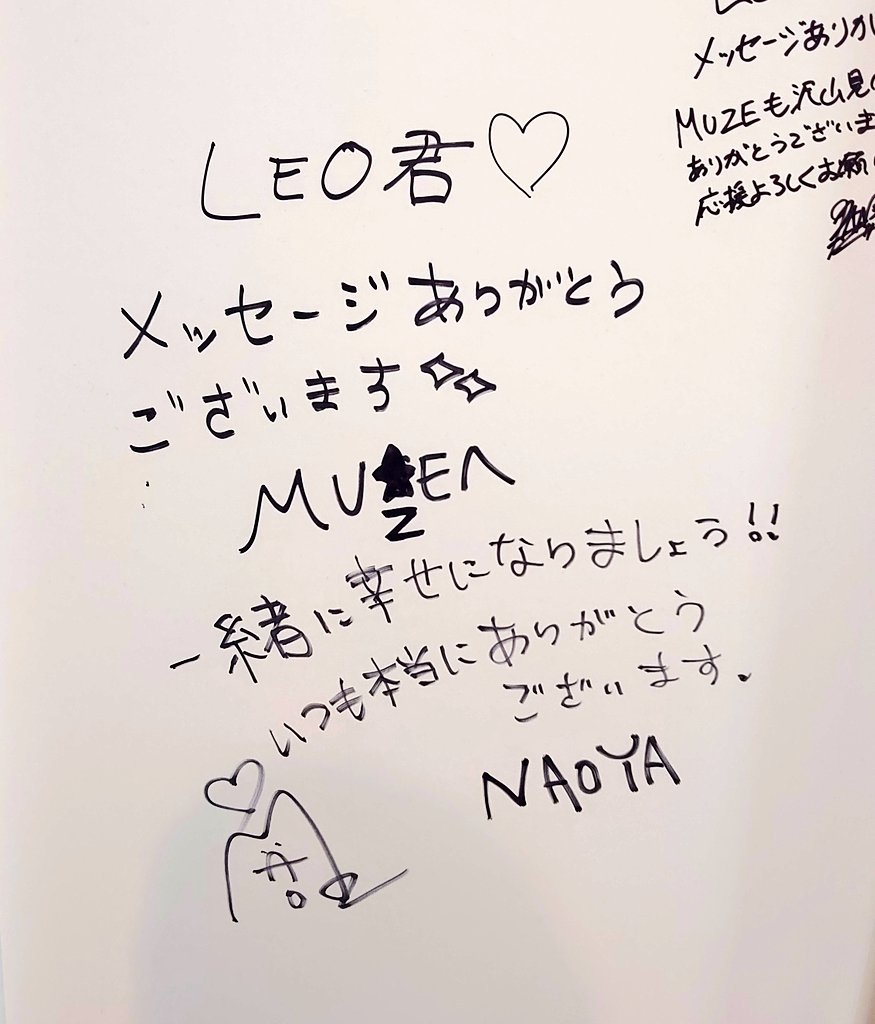 LEO君♡
メッセージありがとう
ございます
MUZEへ
一緒に幸せになりましょう!!
いつも本当にありがとう
ございます.
NAOYA
メッセージありが
MUZEも沢山見
ありがとうございま
応援よろしくお願い